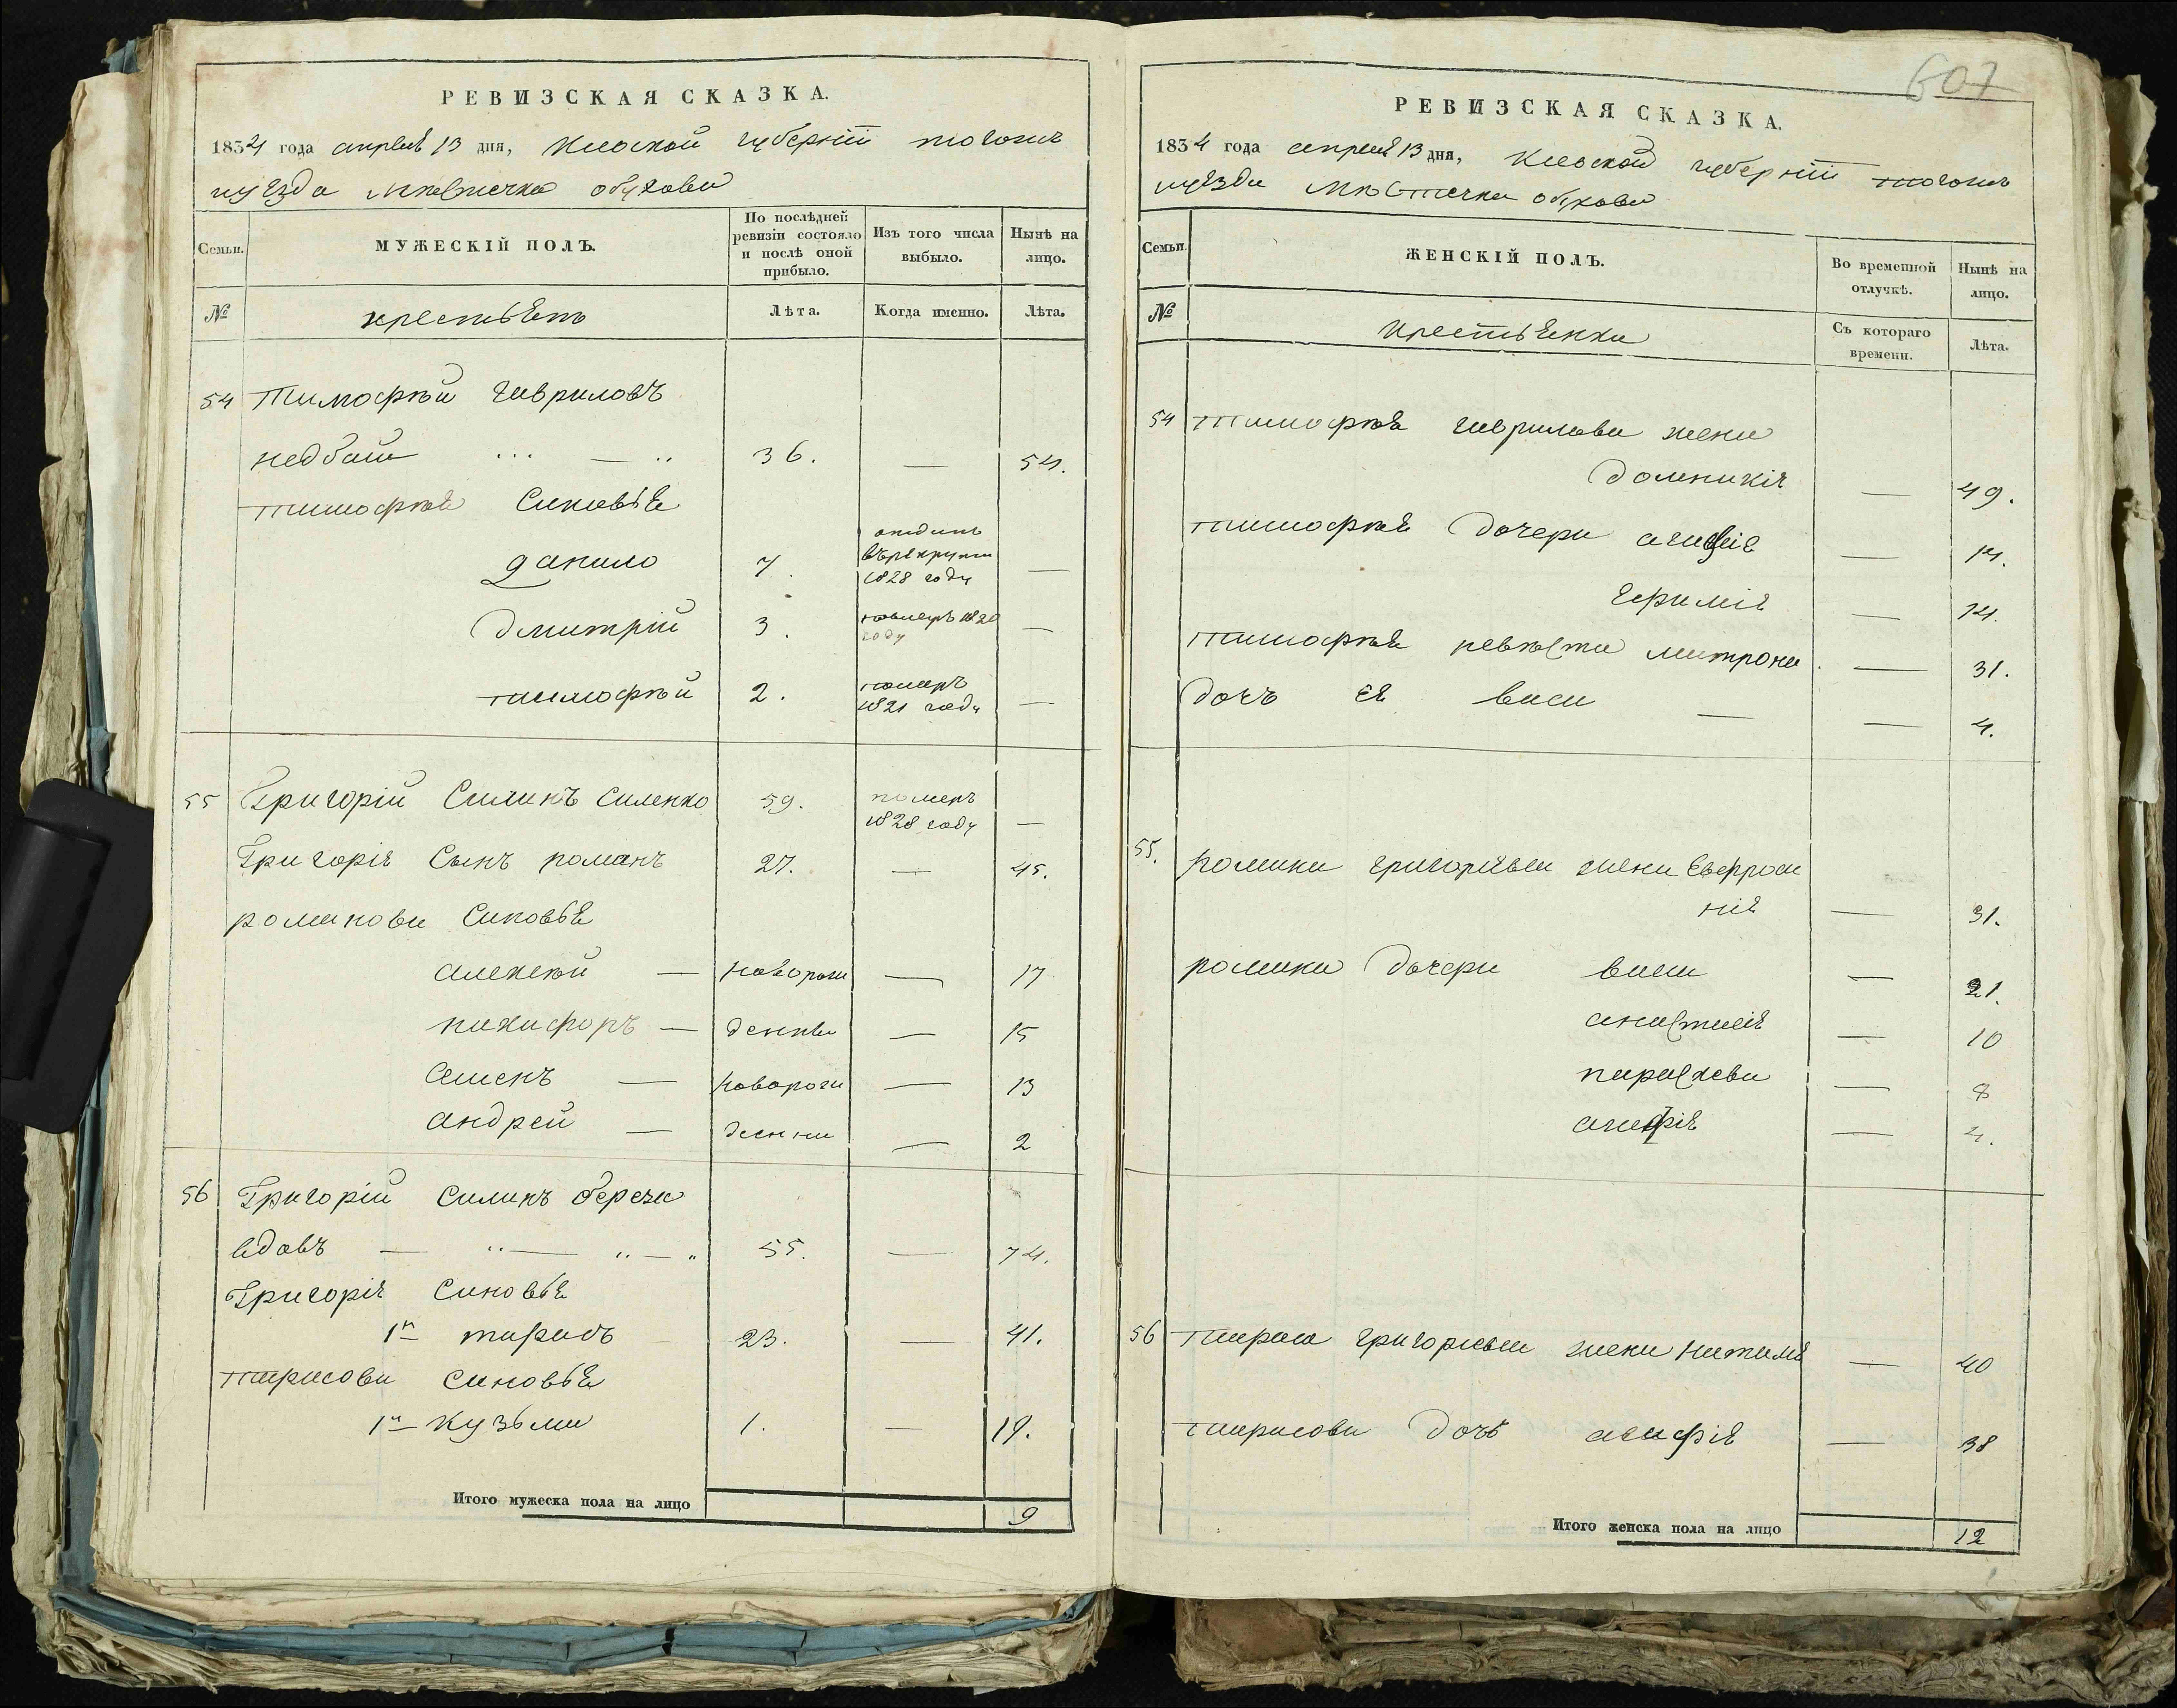 РЕВИЗСКАЯ СКАЗКА.
1834 года апреля 13 дня, Киевской губерніи тогожъ
уезда мѣстечка обухова
Семьи.
МУЖЕСКІЙ ПОЛЪ.
По послѣдней ревизіи состояло и послѣ оной прибыло.
Изъ того числа выбыло.
Нынѣ на лицо.
№
крестьянъ
Лѣта.
Когда именно.
Лѣта.
54 Тимофѣй гавриловъ
недбай 36. — 54.
тимофѣя синовья
данило 7. отданъ въ рекруты 1828 году —
дмитрій 3. померъ 1820 году —
тимофѣй 2. померъ 1821 году —
55 Григорій Силинъ Силенко 59. померъ 1828 году —
Григорія Сынъ романъ 27. — 45.
романови синовья
алексѣй — новорож — 17
никифоръ — денни — 15
Семенъ — новорож — 13
андрей — денни — 2
56 Григорій силинъ береза
вдовъ — 55. — 74.
Григорія синовья
1й тарасъ 23. — 41.
тарасови синовья
1й Кузьма 1. — 19.
Итого мужеска пола на лицо 9
607
РЕВИЗСКАЯ СКАЗКА.
1834 года апреля 13 дня, Киевской губерніи тогожъ
уезда мѣстечка обухова
Семьи.
ЖЕНСКІЙ ПОЛЪ.
Во временной отлучкѣ.
Нынѣ на лицо.
№
крестьянки
Съ котораго времени.
Лѣта.
54 тимофѣя гаврилова жена
домникія — 49.
тимофѣя дочери агафія — 14.
— 14.
тимофѣя невѣстка матрона — 31.
дочъ ея васа — 4.
55. романа григорьева жена Евфроси
нія — 31.
романа дочери васа — 21.
анастасія — 10
параскева — 8
агафія — 4.
56 тараса григорьева жена наталія — 40
тарасова дочъ агафія — 38
Итого женска пола на лицо 12